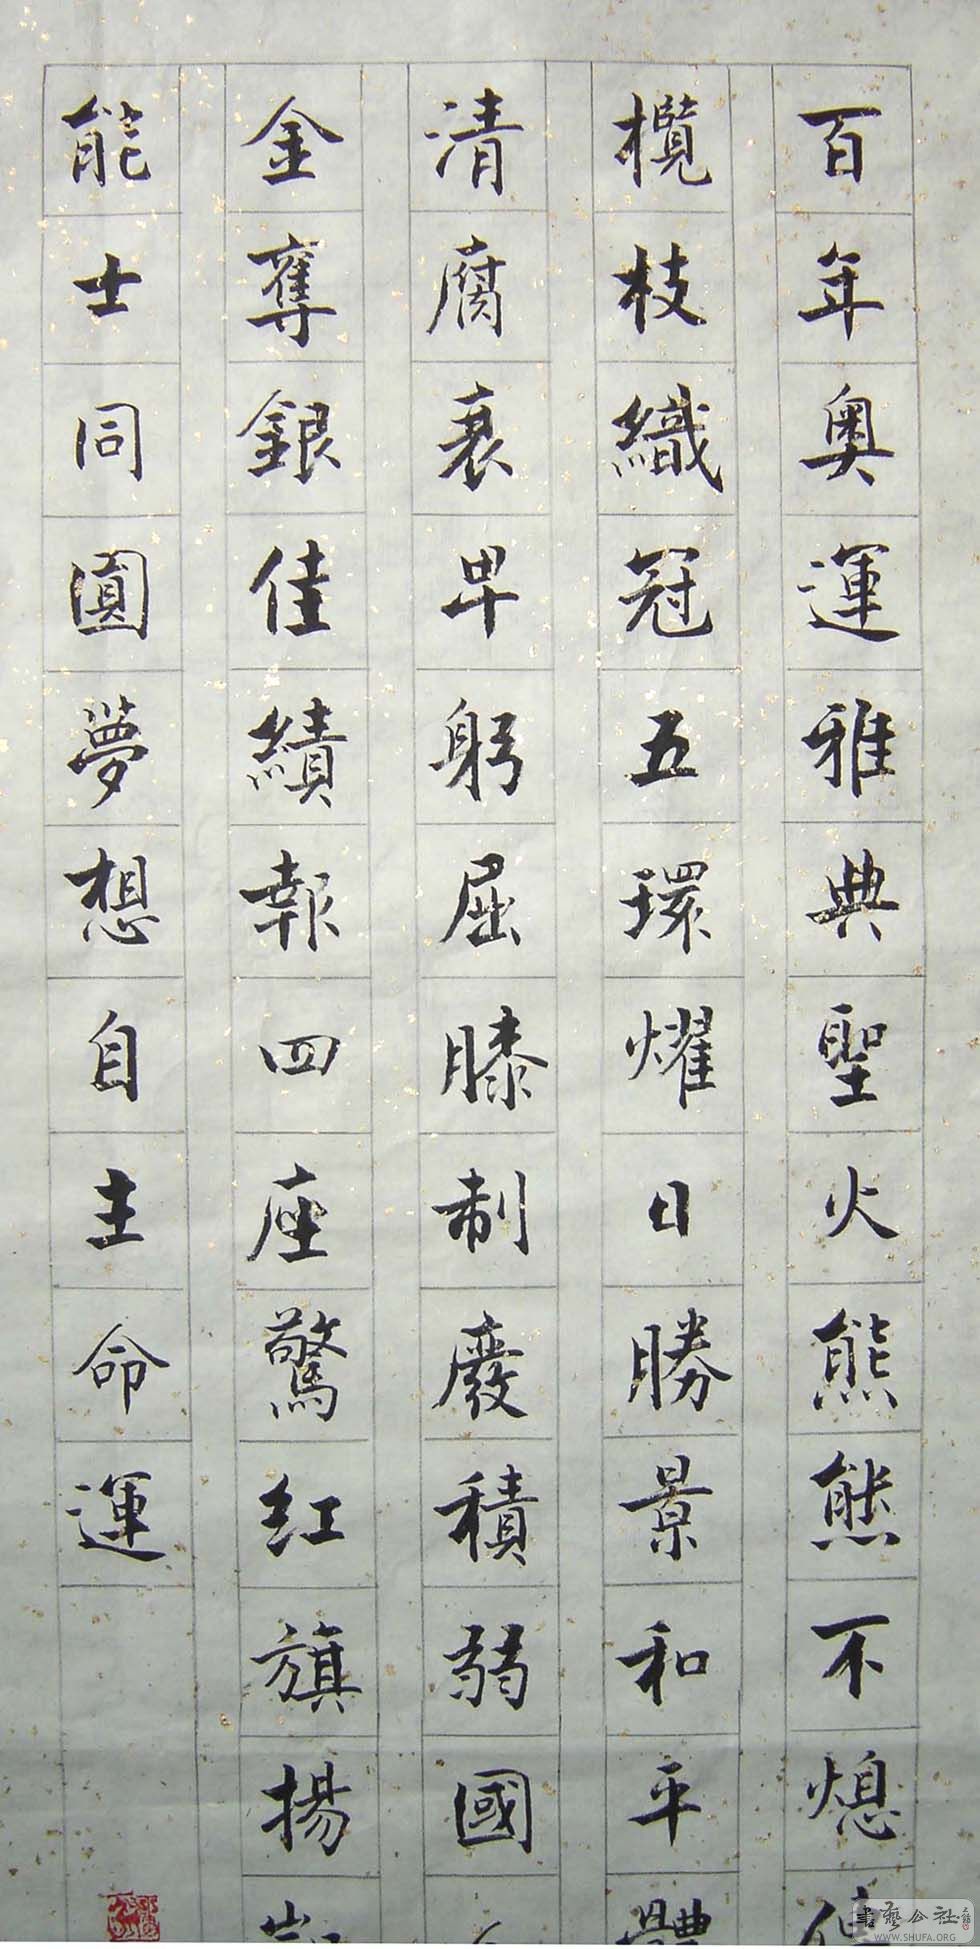 百年奧運雅典聖火熊熊不熄
欖枝織冠五環耀日勝景和平體
清腐衰卑躬屈膝制廢積弱國
金奪銀佳績報四座驚红旗揚
能士同圓夢想自主命運
書藝公社
WWW.SHUFA.ORG